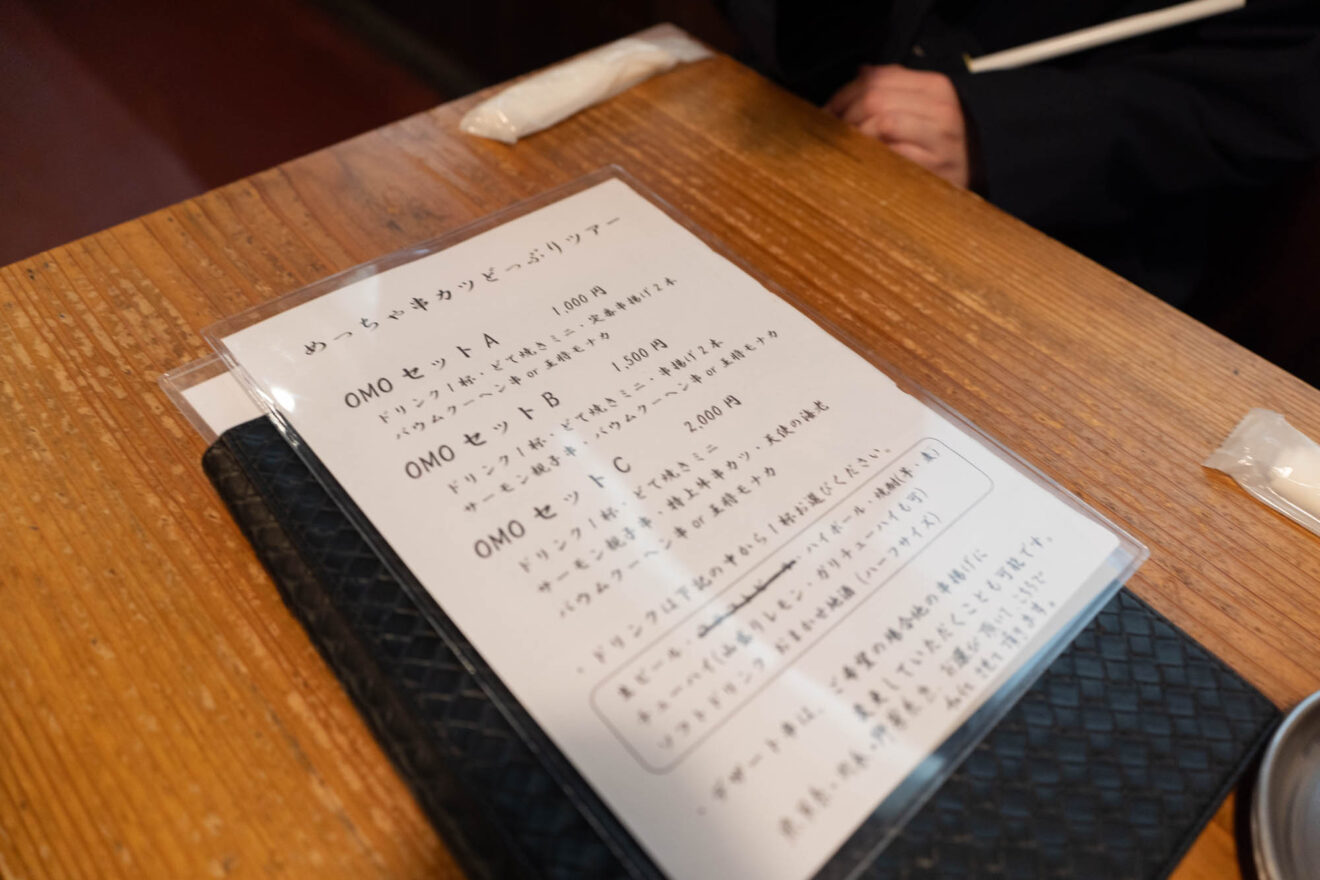 めっちゃ串カツどっぷりツアー
OMO セット A 1,000 円
ドリンク1杯・どて焼きミニ・定番串揚げ2本
バウムクーヘン串 or 王将モナカ
OMO セット B 1,500 円
ドリンク1杯・どて焼きミニ・串揚げ2本
サーモン親子串・バウムクーヘン串 or 王将モナカ
OMO セット C 2,000 円
ドリンク1杯・どて焼きミニ
サーモン親子串・特上牛串カツ・天使の海老
バウムクーヘン串 or 王将モナカ
・ドリンクは下記の中から1杯お選びください。
生ビール ・ハイボール・焼酎(芋・麦)
チューハイ(山盛りレモン・ガリチューハイも可)
ソフトドリンク おまかせ地酒(ハーフサイズ)
・デザート串は、ご希望の場合他の串揚げに
変更していただくことも可能です。
お選び頂けこちらで
させて頂きます。